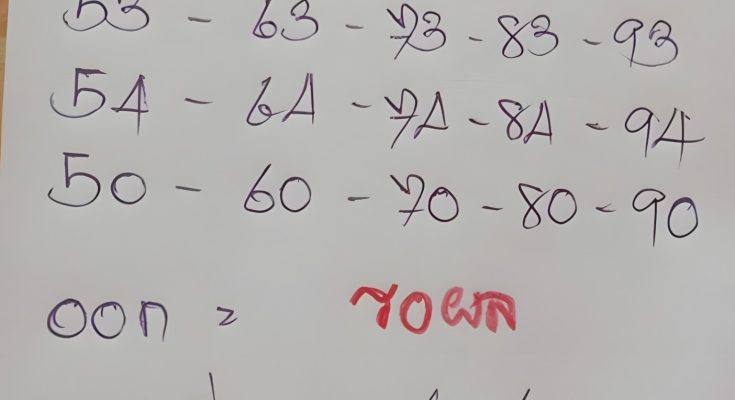 53 - 63 - 73 - 83 - 93
54 - 64 - 74 - 84 - 94
50 - 60 - 70 - 80 - 90
ออก = รอผล